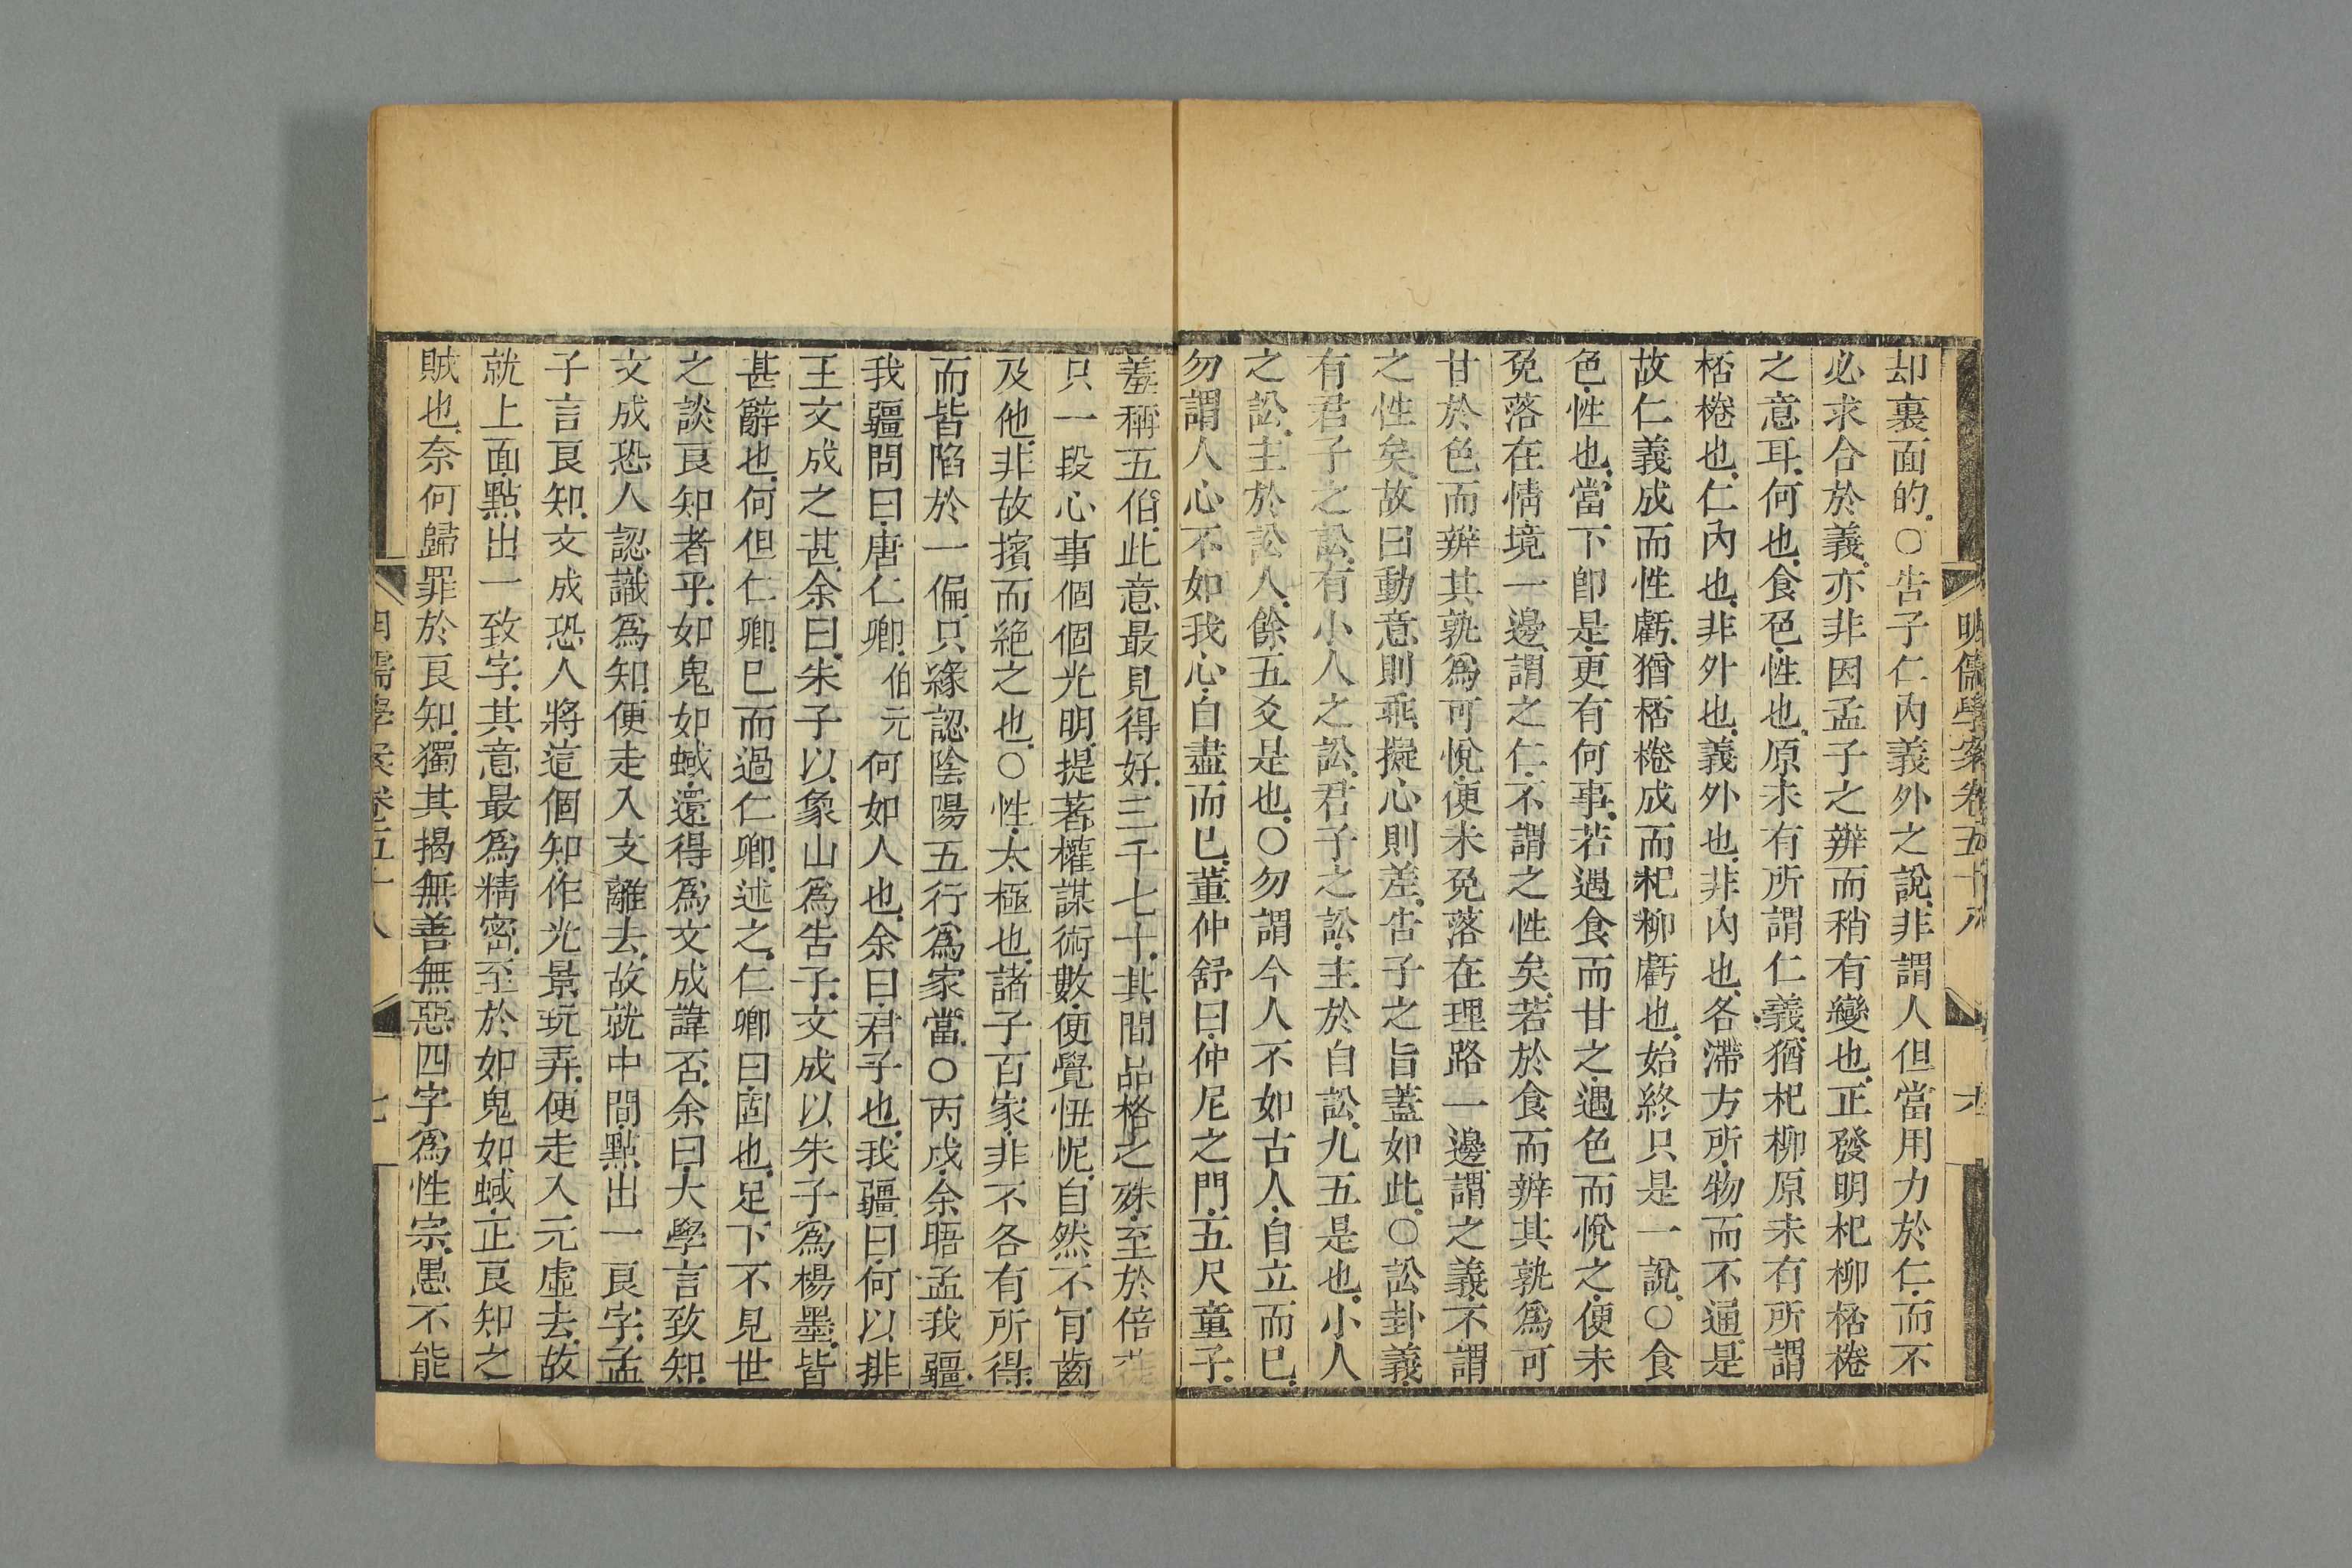 明儒學案卷五十八
却裏面的○告子仁內義外之說非謂人但當用力於仁而不
必求合於義亦非因孟子之辨而稍有變也正發明杞柳桮棬
之意耳何也食色性也原未有所謂仁義猶杞柳原未有所謂
桮棬也仁內也非外也義外也非內也各滯方所物而不通是
故仁義成而性虧猶桮棬成而杞柳虧也始終只是一說○食
色性也當下卽是更有何事若遇食而甘之遇色而悅之便未
免落在情境一邊謂之仁不謂之性矣若於食而辨其孰爲可
甘於色而辨其孰爲可悅便未免落在理路一邊謂之義不謂
之性矣故曰動意則乖擬心則差告子之旨蓋如此○訟卦義
有君子之訟有小人之訟君子之訟主於自訟九五是也小人
之訟主於訟人餘五爻是也○勿謂今人不如古人自立而已
勿謂人心不如我心自盡而已董仲舒曰仲尼之門五尺童子
羞稱五伯此意最見得好三千七十其間品格之殊至於倍
只一段心事個個光明提著權謀術數便覺忸怩自然不肎齒
及他非故擯而絕之也○性太極也諸子百家非不各有所得
而皆陷於一偏只緣認陰陽五行爲家當○丙戌余晤孟我疆
我疆問曰唐仁卿伯元何如人也余曰君子也我疆曰何以排
王文成之甚余曰朱子以象山爲告子文成以朱子爲楊墨皆
甚辭也何但仁卿已而過仁卿述之仁卿曰固也足下不見世
之談良知者乎如鬼如蜮還得爲文成諱否余曰大學言致知
文成恐人認識爲知便走入支離去故就中間點出一良字孟
子言良知文成恐人將這個知作光景玩弄便走入元虛去故
就上面點出一致字其意最爲精密至於如鬼如蜮正良知之
賊也奈何歸罪於良知獨其揭無善無惡四字爲性宗愚不能
明儒學案卷五十八